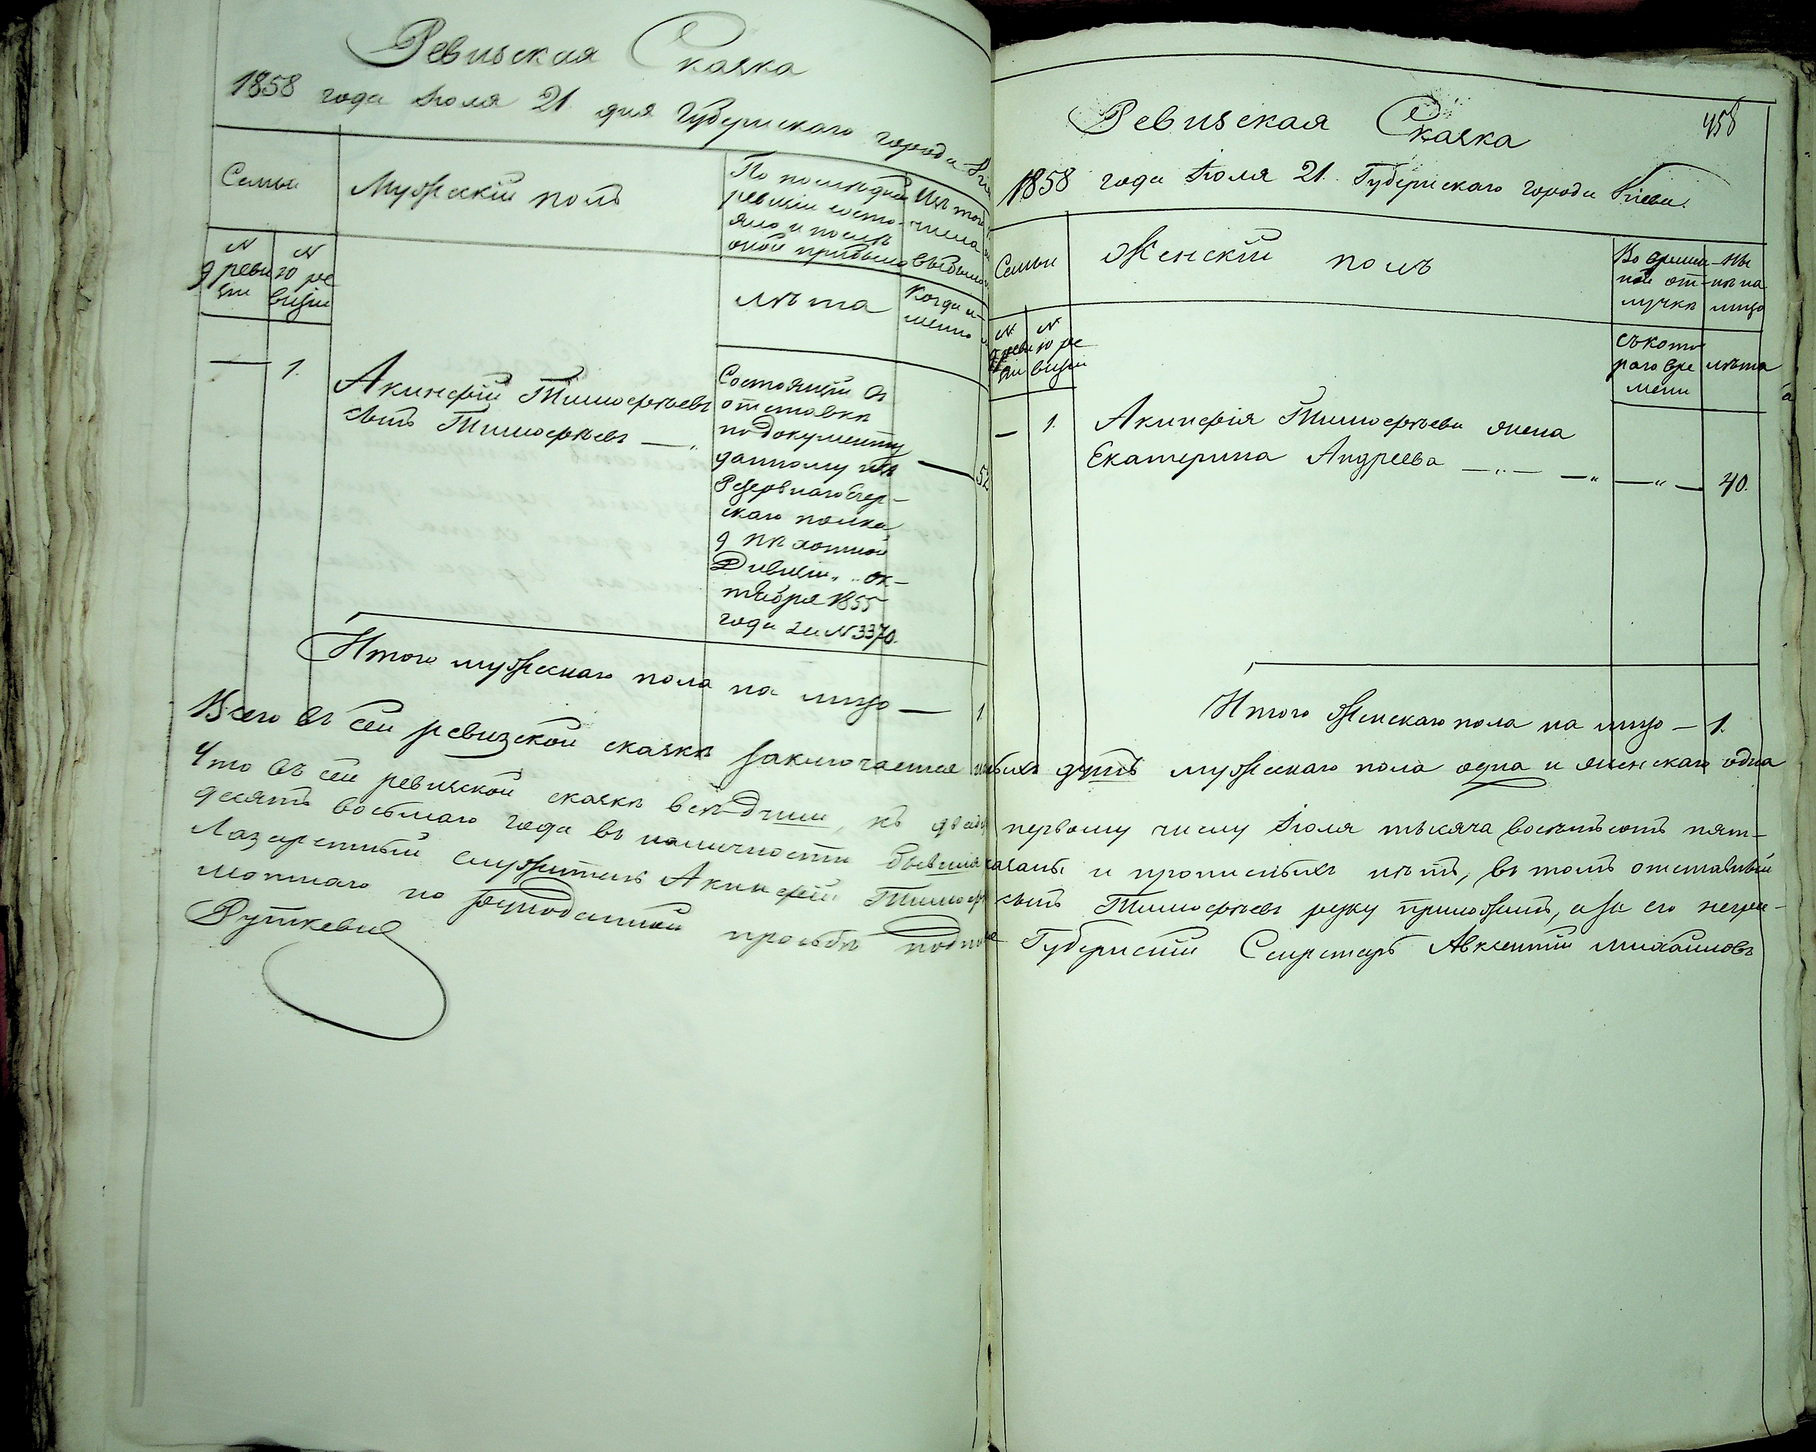 Ревизская Сказка
1858 года Іюля 21 дня Губернскаго города
Семьи
Мужескій полъ
По последней
ревизіи состо-
яло и послѣ
оной прибыло
Изъ того
числа
выбыло
№
9 реви
зіи
№
10 ре
визіи
лѣта
Когда и-
менно
— 1.
Акинфій Тимофѣевъ
сынъ Тимофѣевъ — „
Состоящій въ
отставкѣ
по документу
данному изъ
Резервнаго Егер-
скаго полка
9 пѣхотной
Дивизіи „ „ ок-
тября 1855
года за №3370.
— 52
Итого мужескаго пола на лицо — 1
Ревизская Сказка
458
1858 года Іюля 21. Губернскаго города Кіева.
Семьи
Женскій полъ
Во времен-
ной от-
лучкѣ
Ны-
нѣ на
лицо
№
9 реви
зіи
№
10 ре
визіи
съ кото
раго вре
мени
лѣта
— 1.
Акинфія Тимофѣева жена
Екатерина Андреева — „ — — „ — „ — 40.
Итого Женскаго пола на лицо — 1.
Всего въ сей ревизской сказкѣ заключается душъ мужескаго пола одна и женскаго одна
Что въ сей ревизской сказкѣ всѣ души, къ первому числу Іюля тысяча восемъсотъ пять-
десятъ восьмаго года въ наличности бывшія и прописныхъ нѣтъ, въ томъ отставный
Лазаретный служитель Акинфій сынъ Тимофѣевъ руку приложилъ, а за его негра-
мотнаго по рукоданной просьбѣ Губернскій Секретарь Авксентій Михайловъ
Руткевичъ